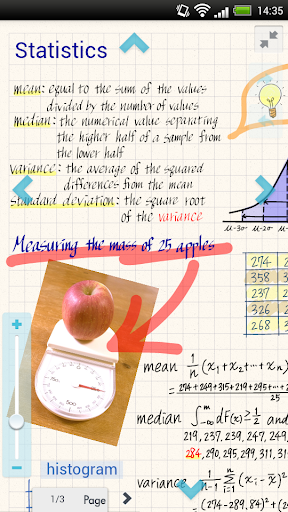 14:35
Statistics
mean: equal to the sum of the values
divided by the number of values
median: the numerical value separating
the higher half of a sample from
the lower half
variance: the average of the squared
differences from the mean
standard deviation: the square root
of the variance
μ-3σ μ-2σ μ-
Measuring the mass of 25 apples
274 2
358
237
326
268
mean 1/n (x₁+x₂+⋯+xₙ)
= 274+249+315+219+295+⋯+
25
median ∫₋∞ᵐ dF(x) ≥ 1/2 and
219, 237, 239, 247, 249,
284, 290, 295, 299, 311, 31
variance 1/n-1 Σᵢ₌₁ⁿ (xᵢ-x̄)²
= (274-289.84)² + (2
histogram
1/3 Page